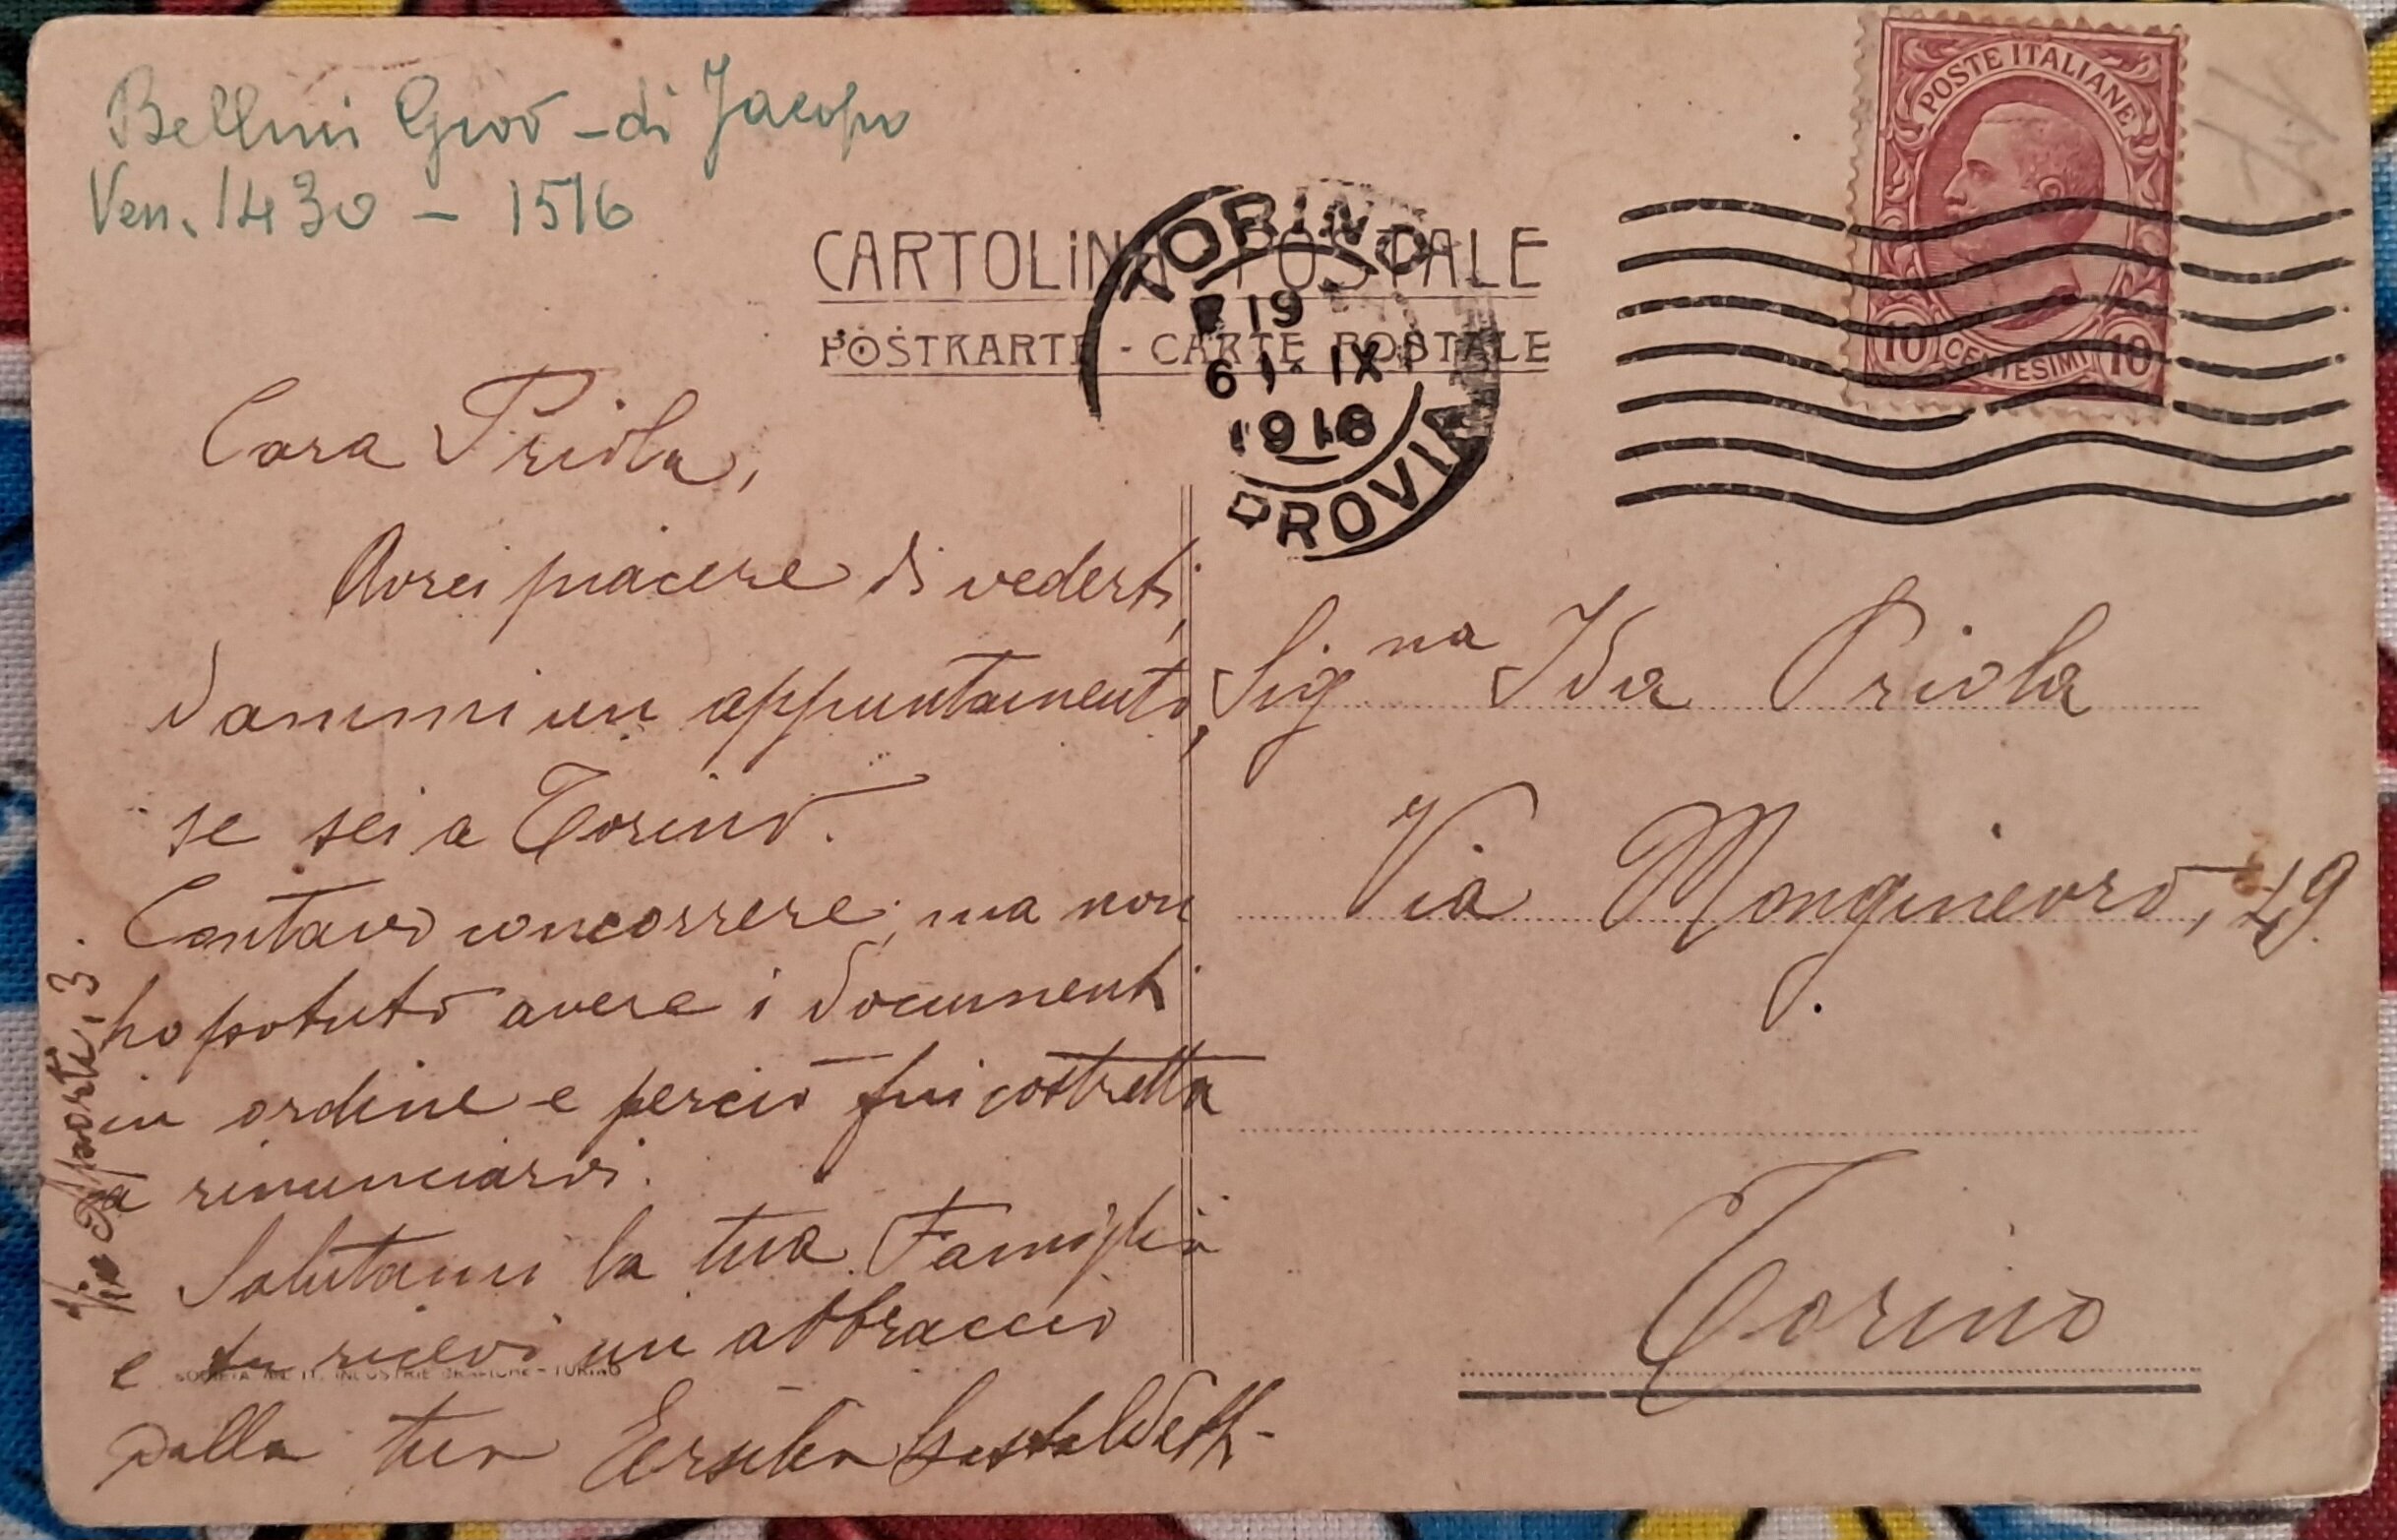 Bellini Giov - di Jacopo
Ven. 1430 - 1516
POSTE ITALIANE
10 CENTESIMI 10
CARTOLINA POSTALE
POSTKARTE - CARTE POSTALE
TORINO
19
1. IX
1916
Cara Priola,
Avrei piacere di vederti,
dammi un appuntamento,
se sei a Torino.
Contavo concorrere, ma non
ho potuto avere i documenti
in ordine e perciò fui costretta
a rinunciarvi.
Salutami la tua Famiglia
e tu ricevi un abbraccio
dalla tua Ersilia Gastaldetti
Via Aporti, 3.
Sig.na Ida Priola
Via Monginevro, 49
Torino
SOCIETÀ AN. IT. INDUSTRIE GRAFICHE - TORINO